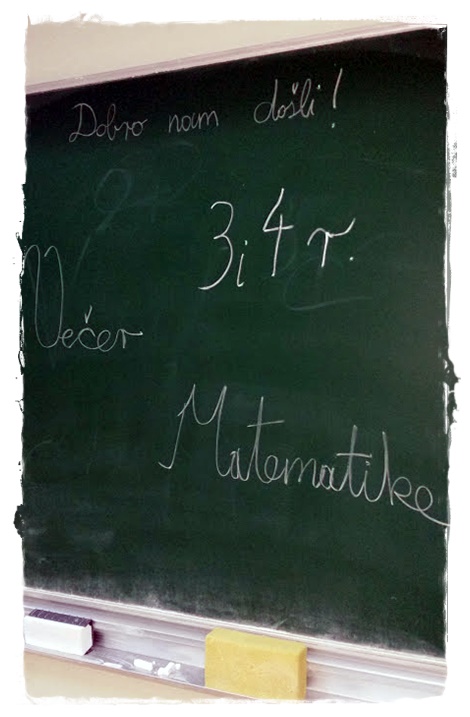 Dobro nam došli!
3 i 4 r.
Večer
Matematike